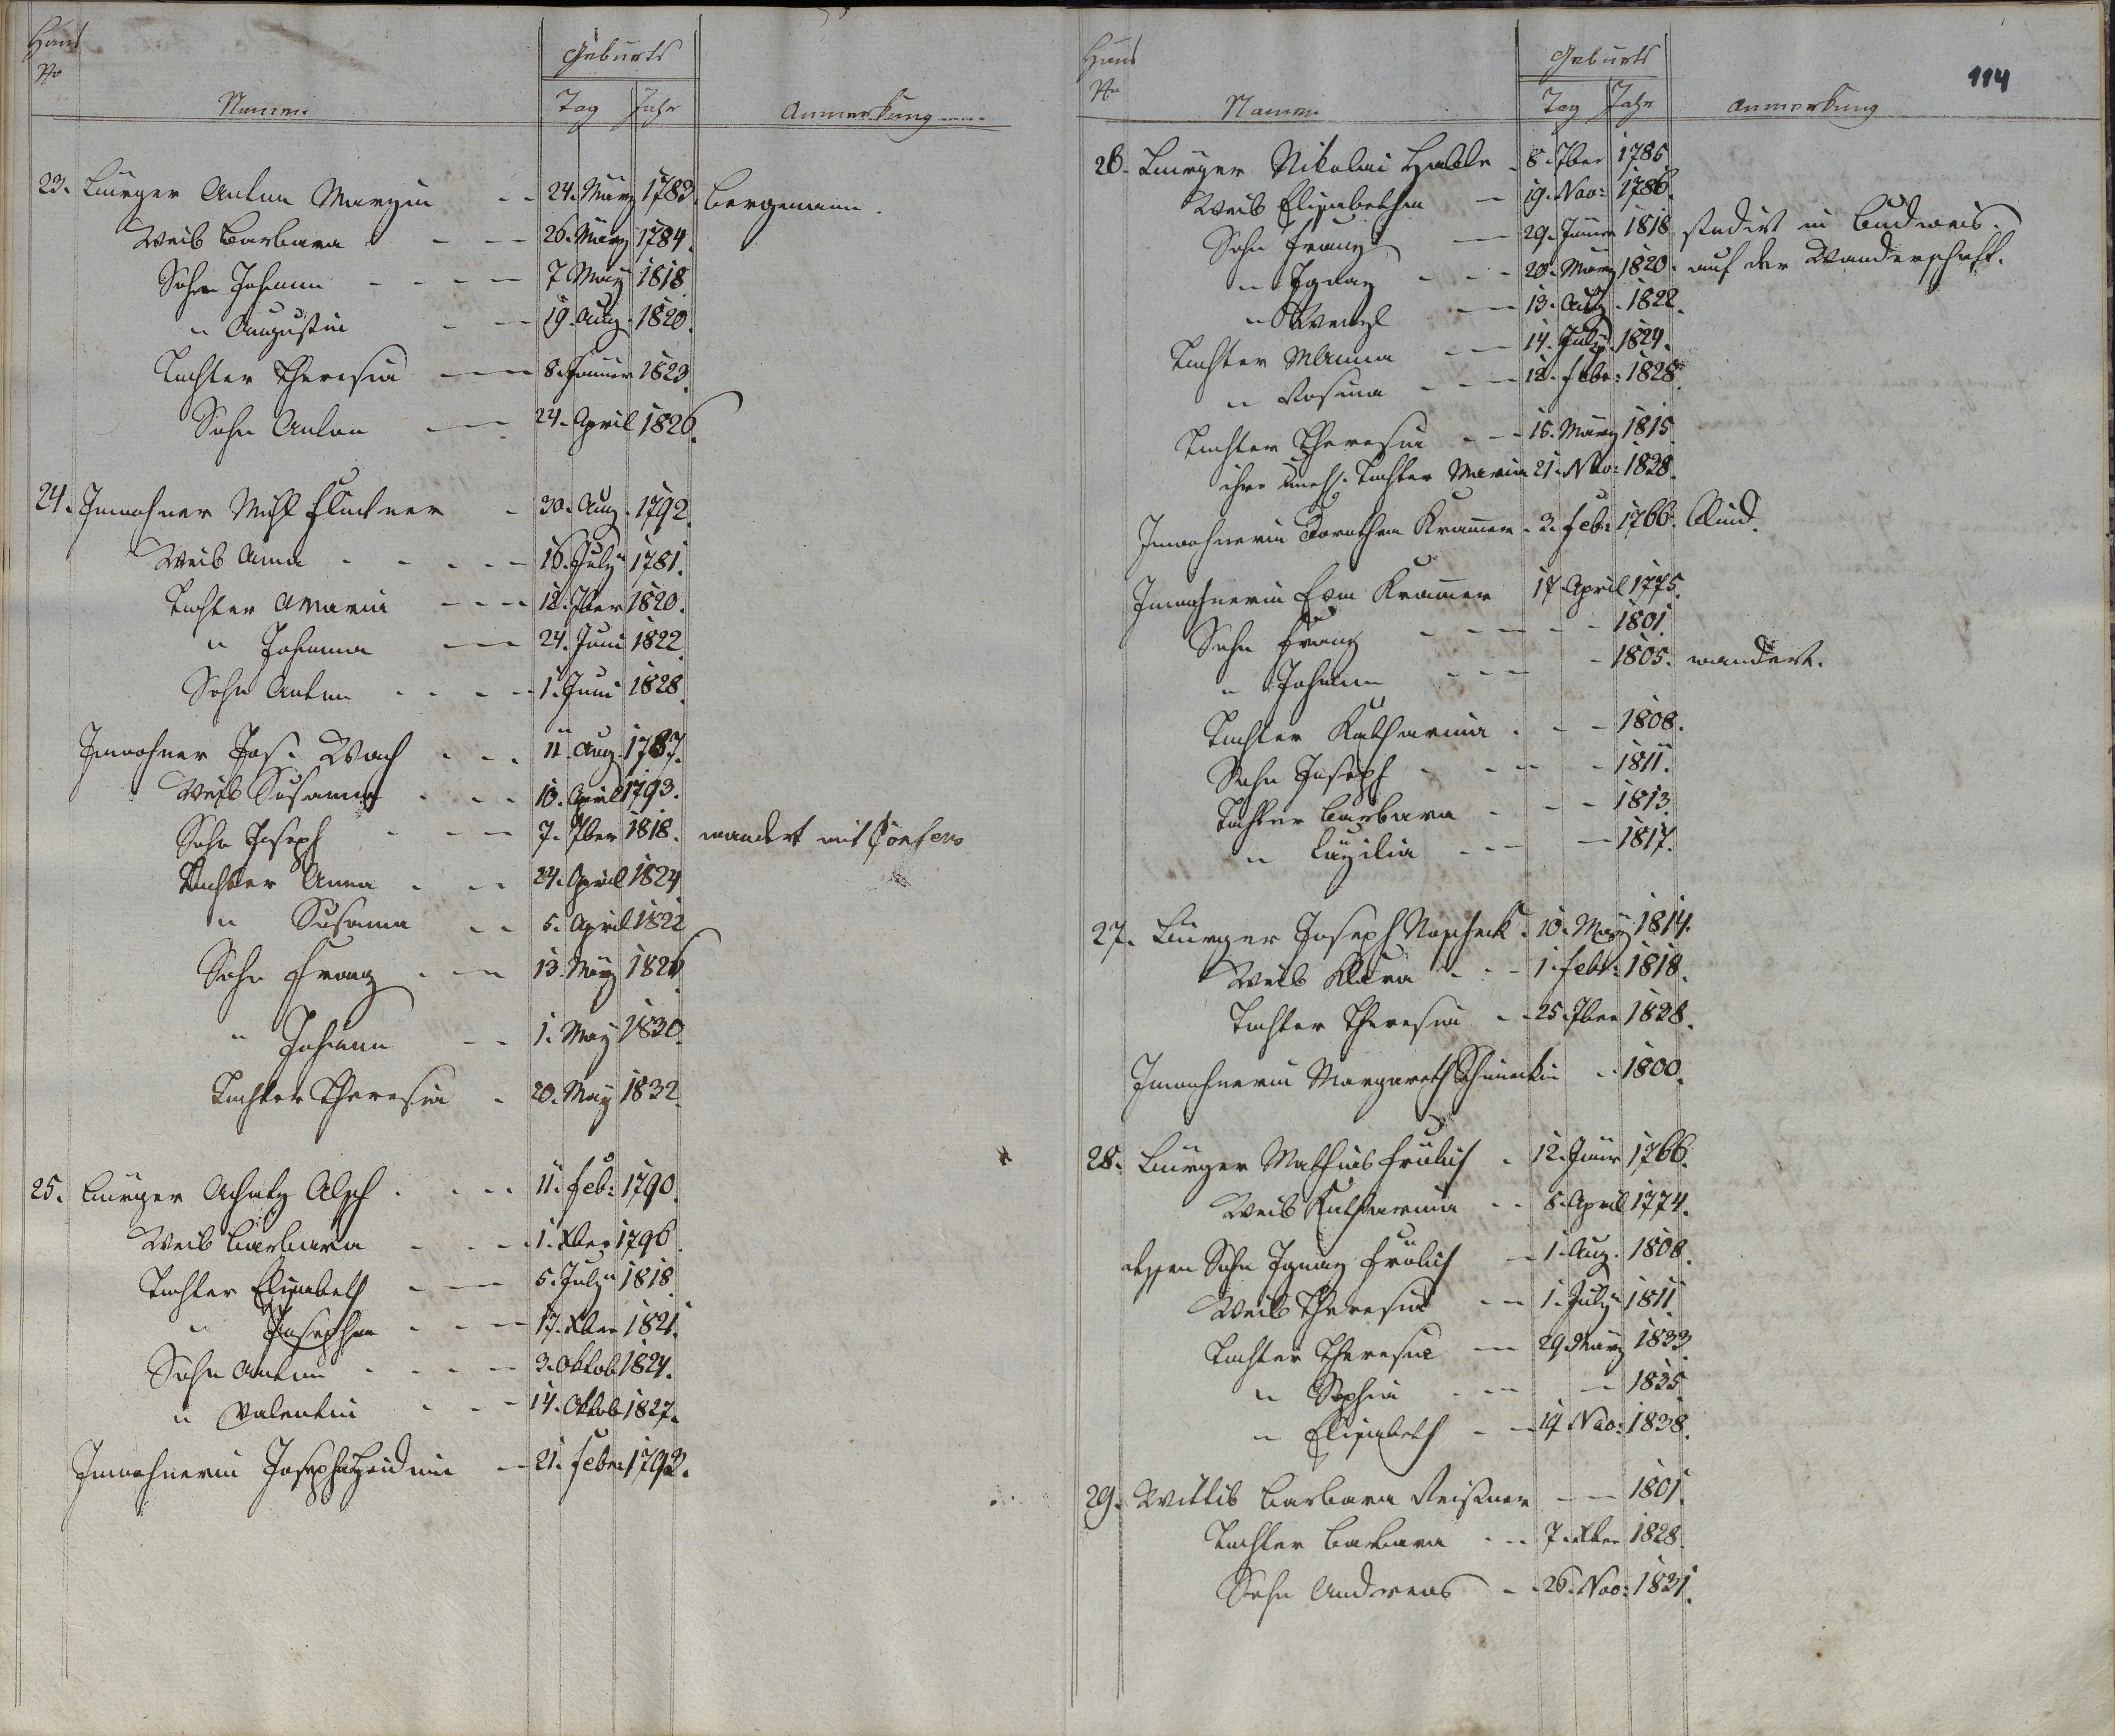 Haus
Nr
Namen
Geburts
Tag Jahr
Anmerkung
23. Bürger Anton Margin 24. März 1783. Bergmann.
Weib Barbara 26. März 1784.
Sohn Johann 7 May 1818
" Augustin 19. Aug. 1820.
Tochter Theresia 8. Jänner 1823.
Sohn Anton 24. April 1826.
24. Inwohner Mich 30. Aug. 1792.
Weib Anna 16. July 1781.
Tochter Maria 12. 7ber 1820.
" Johanna 24. Juni 1822.
Sohn Anton 1. Juni 1828.
Inwohner Jos. Wach 11. Aug. 1787.
Weib Susanna 10. April 1793.
Sohn Joseph 7. 7ber 1818. wandert mit
Tochter Anna 24. April 1824
" Susanna 5. April 1822
Sohn Franz 13. May 1826.
" Johann 1. May 1830.
Tochter Theresia 20. May 1832.
25. Bürger Achatz 11. Feb: 1790.
Weib Barbara 1. Xber 1796.
Tochter Elisabeth 5. July 1818.
" Josepha 17. Xber 1821.
Sohn Anton 3. Oktob 1824.
" Valentin 14. Oktob 1827.
Inwohnerin Josepha 21. Feber 1793.
114
Haus
Nr
Namen
Geburts
Tag Jahr
Anmerkung
26. Bürger Nikolai 8. 7ber 1785.
Weib Elisabetha 19. Nov: 1786.
Sohn Franz 29. Jänner 1818 studirt in Budweis.
" Ignaz 20. März 1820. auf der Wanderschaft.
" Wenzl 13. Aug. 1822.
Tochter M Anna 14. July 1824.
" Rosina 12. Febr: 1828.
Tochter Theresia 15. März 1815.
ihre uneh. Tochter Maria 21. Nov: 1828.
Inwohnerin Dorothea Kramer 3. Feb: 1766. Blind.
Inwohnerin Eva Kramer 17 April 1775.
Sohn Franz 1801.
" Johann 1805. wandert.
Tochter Katharina 1808.
Sohn Joseph 1811.
Tochter Barbara 1813.
" Cäzilia 1817.
27. Bürger Joseph 10. May 1814.
Weib Klara 1. Febr: 1818.
Tochter Theresia 25. 7ber 1838.
Inwohnerin Margareth 1800.
28. Bürger Mathias Frölich 12. Jänr 1766.
Weib Katharina 8. April 1774.
dessen Sohn Ignaz Frölich 1. Aug. 1808.
Weib Theresia 1. July 1811.
Tochter Theresia 29 März 1833.
" Sophia 1835.
" Elisabeth 14 Nov: 1838.
29. Wittib Barbara Reißner 1801.
Tochter Barbara 7. Xber 1828.
Sohn Andreas 26. Nov: 1831.